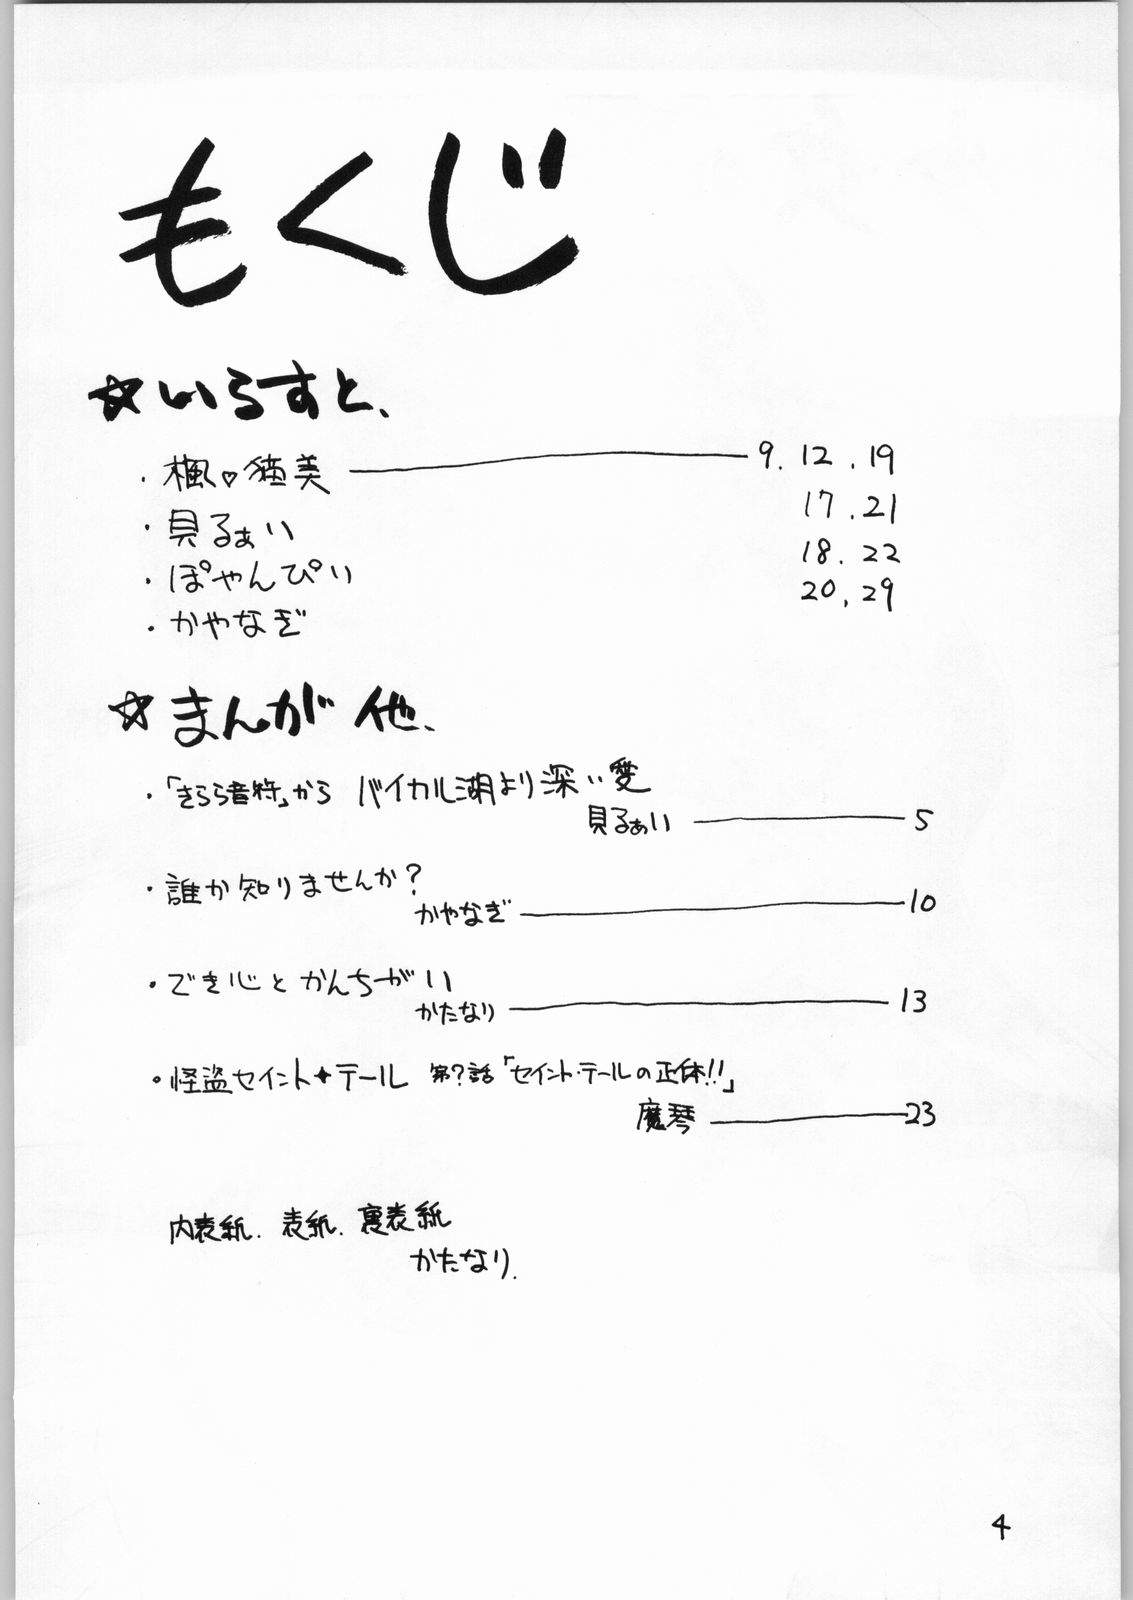 もくじ
☆いらすと、
・楓♡猫美 9.12.19
・貝るぁい 17.21
・ぽやんぴい 18.22
・かやなぎ 20.29
☆まんが他、
・「きらら音符」から バイカル湖より深い愛
貝るぁい 5
・誰か知りませんか?
かやなぎ 10
・でき心とかんちがい
かたなり 13
・怪盗セイント✦テール 第?話「セイント・テールの正体!!」
魔琴 23
内表紙.表紙.裏表紙
かたなり.
4